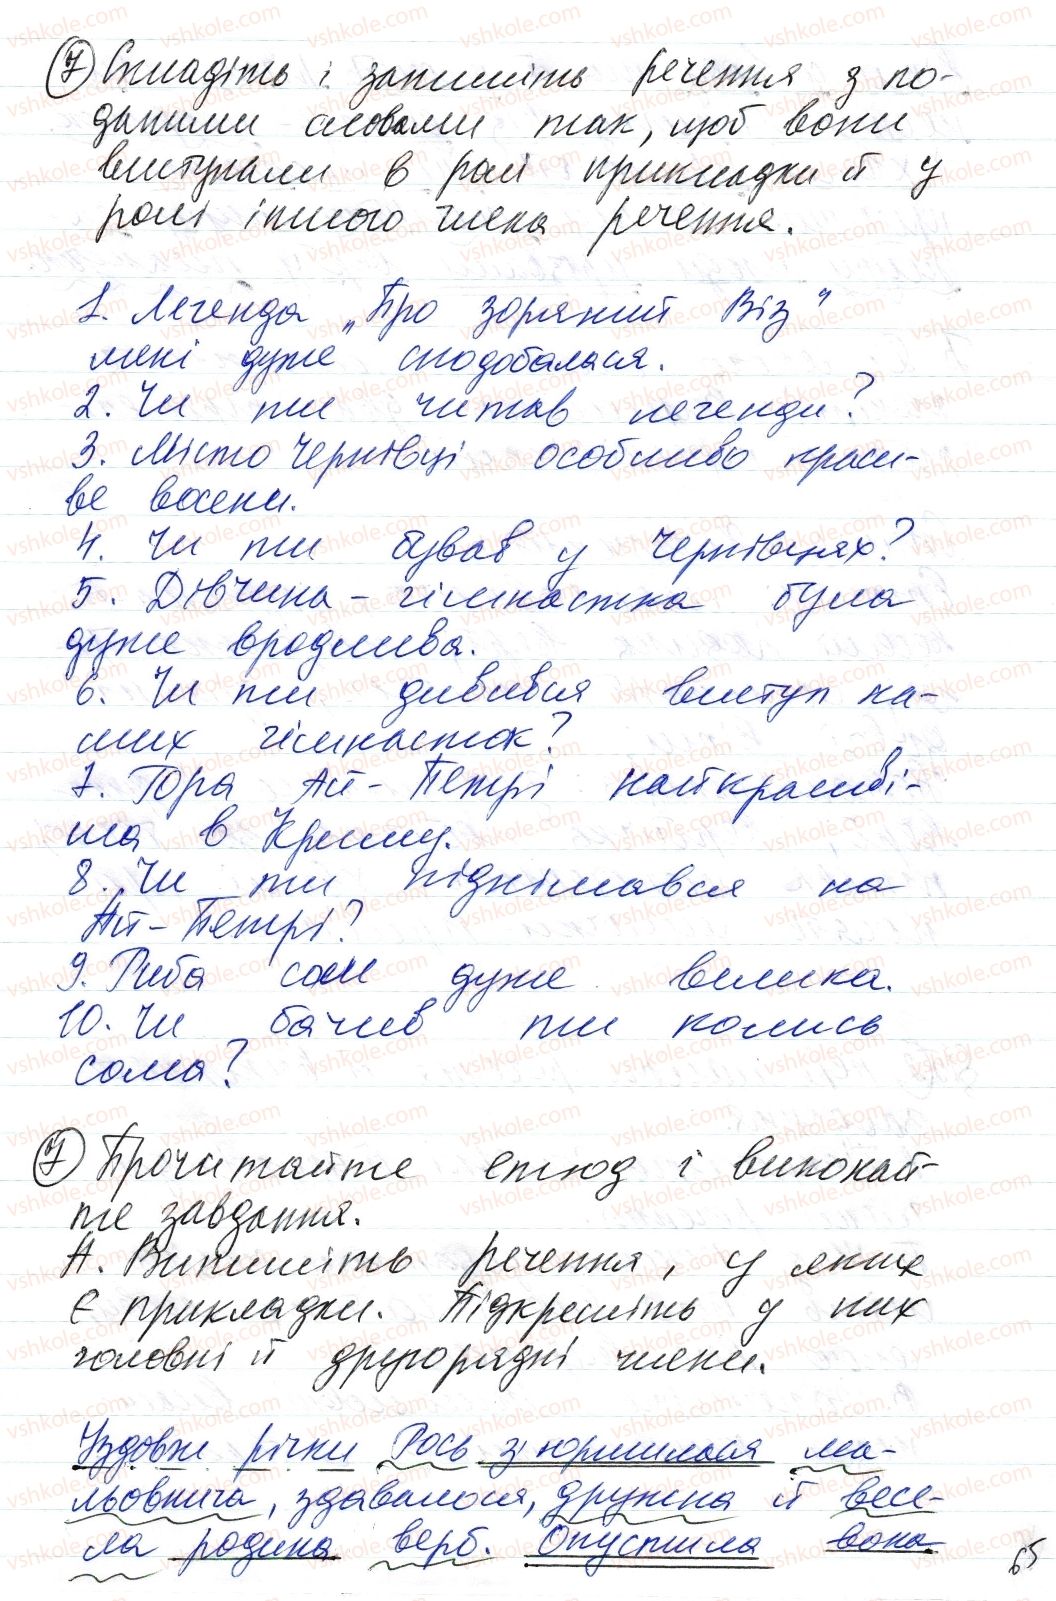 7 Складіть і запишіть речення з по-
даними словами так, щоб вони
виступали в ролі прикладки й у
ролі іншого члена речення.
1. Легенда „Про зоряний Віз"
мені дуже сподобалася.
2. Чи ти читав легенди?
3. Місто Чернівці особливо краси-
ве восени.
4. Чи ти бував у Чернівцях?
5. Дівчина - гімнастка була
дуже вродлива.
6. Чи ти дивився виступ на-
ших гімнасток?
7. Гора Ай-Петрі найкрасиві-
ша в Криму.
8. Чи ти піднімався на
Ай-Петрі?
9. Риба сом дуже велика.
10. Чи бачив ти колись
сома?
7 Прочитайте етюд і виконай-
те завдання.
А. Випишіть речення, у яких
є прикладки. Підкресліть у них
головні й другорядні члени.
Уздовж річки Рось зіюрмилася ма-
льовнича, здавалося, дружна й весе-
ла родина верб. Опустила вона
65